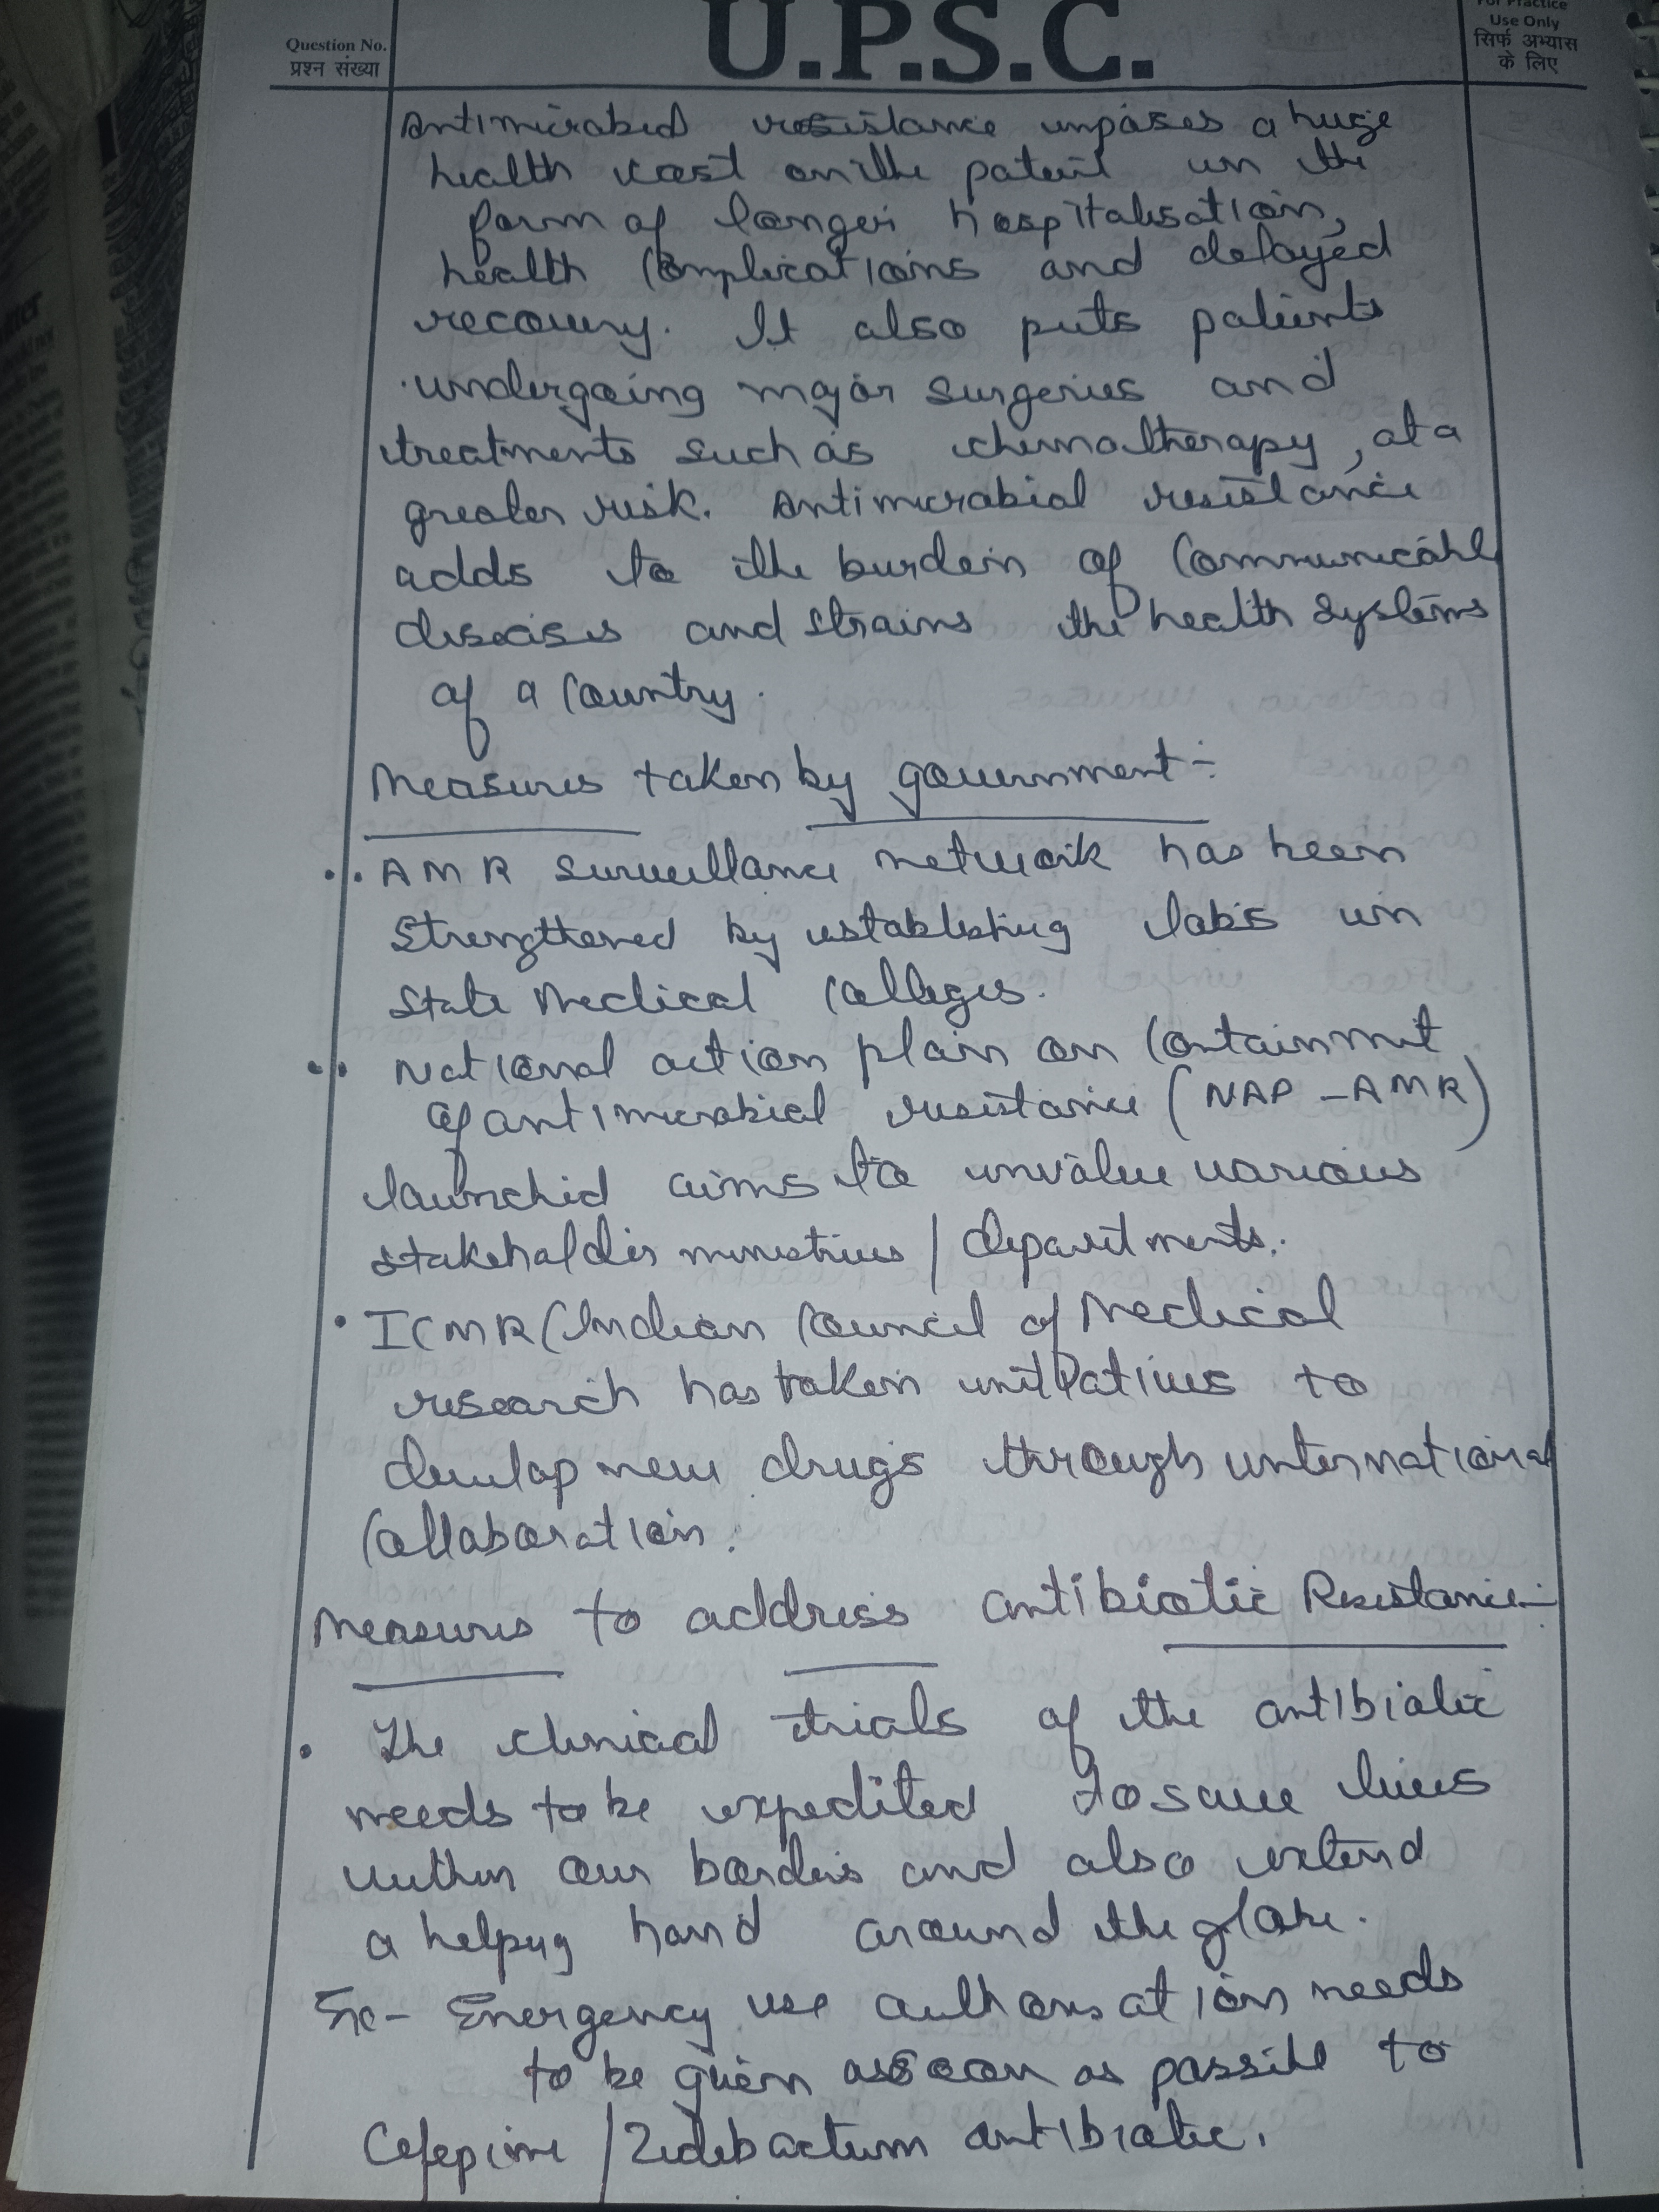 U.P.S.C.
Question No.
प्रश्न संख्या
For Practice
Use Only
सिर्फ अभ्यास
के लिए
Antimicrobial resistance imposes a huge
health cost on the patient in the
form of longer hospitalisation,
health complications and delayed
recovery. It also puts patients
undergoing major surgeries and
treatments such as chemotherapy, at a
greater risk. Antimicrobial resistance
adds to the burden of communicable
diseases and strains the health systems
of a country.
Measures taken by government :-
• AMR Surveillance network has been
strengthened by establishing labs in
State Medical Colleges.
• National action plan on Containment
of antimicrobial resistance (NAP - AMR)
launched aims to involve various
stakeholder ministries / departments.
• ICMR (Indian Council of Medical
research has taken initiatives to
develop new drugs through international
Collaboration.
Measures to address antibiotic Resistance :-
• The clinical trials of the antibiotic
needs to be expedited to save lives
within our borders and also extend
a helping hand around the globe.
Ex - Emergency use authorisation needs
to be given as soon as possible to
Cefepime / Zidebactum antibiotic.